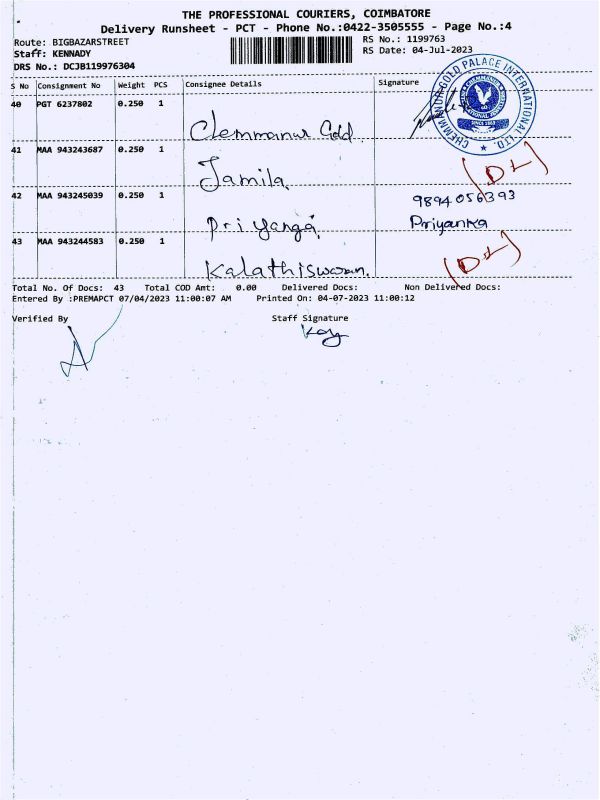 THE PROFESSIONAL COURIERS, COIMBATORE
Delivery Runsheet - PCT - Phone No.:0422-3505555 - Page No.:4
Route: BIGBAZARSTREET
RS No.: 1199763
Staff: KENNADY
RS Date: 04-Jul-2023
DRS No.: DCJB119976304
S No Consignment No Weight PCS Consignee Details Signature
40 PGT 6237802 0.250 1
Clemmanur Gold
CHEMMANUR GOLD PALACE INTERNATIONAL LTD.
41 MAA 943243687 0.250 1
Jamila
(DL)
42 MAA 943245039 0.250 1
9894056393
Priyanga
Priyanka
43 MAA 943244583 0.250 1
Kalathiswaran.
(DL)
Total No. Of Docs: 43 Total COD Amt: 0.00 Delivered Docs: Non Delivered Docs:
Entered By :PREMAPCT 07/04/2023 11:00:07 AM Printed On: 04-07-2023 11:00:12
Verified By Staff Signature